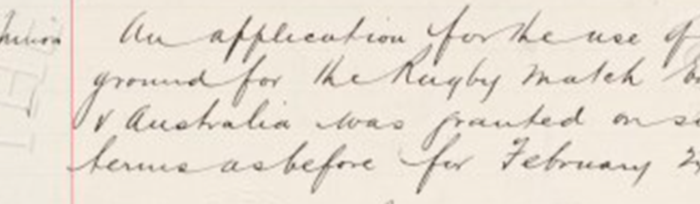 An application for the use of
ground for the Rugby Match
v Australia was granted on
terms as before for February